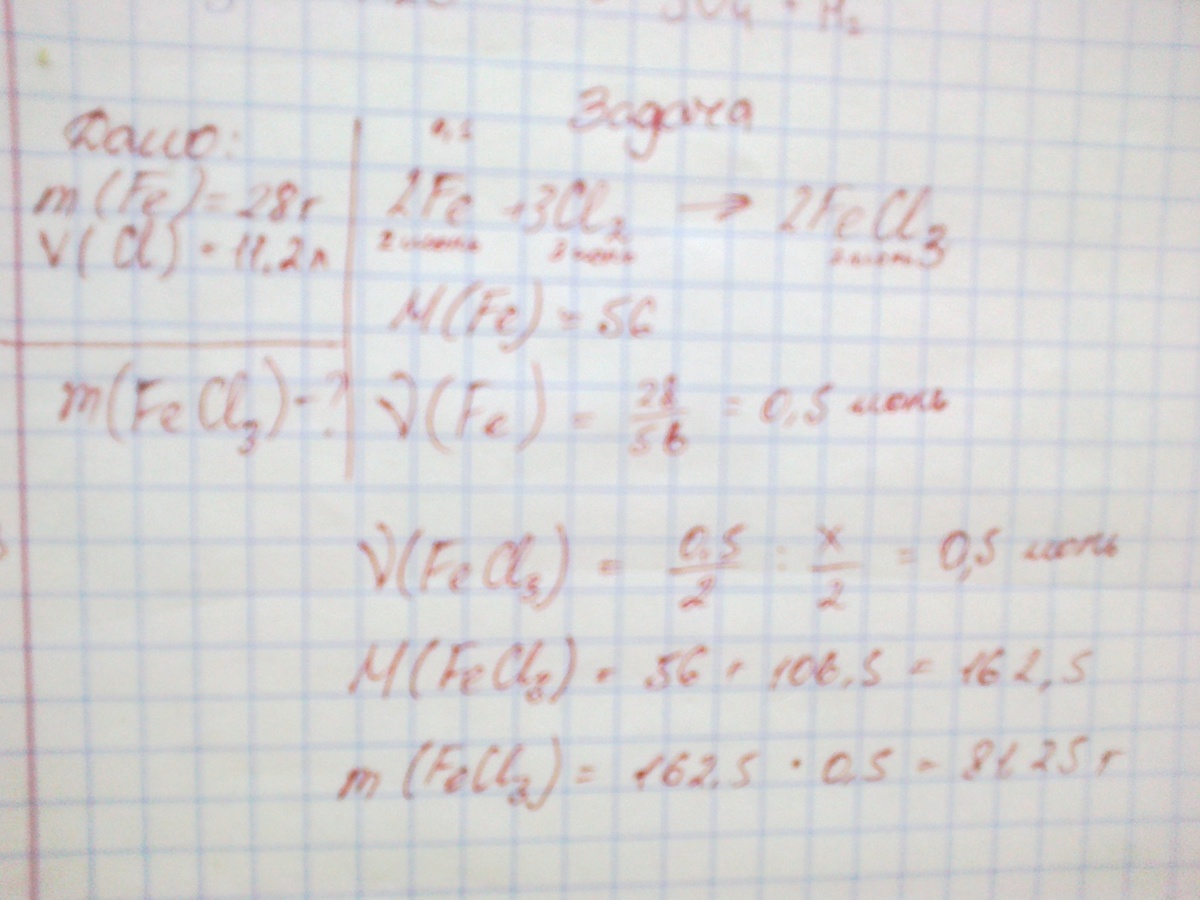 SO4 + H2
Задача
Дано:
m(Fe) = 28г
V(Cl) = 11.2л
m(FeCl3) - ?
0,5
2Fe + 3Cl2 → 2FeCl3
2 моль 3 моль 2 моль
M(Fe) = 56
ν(Fe) = 28/56 = 0,5 моль
ν(FeCl3) = 0.5/2 : x/2 = 0,5 моль
M(FeCl3) = 56 + 106,5 = 162,5
m(FeCl3) = 162.5 · 0.5 = 81.25 г